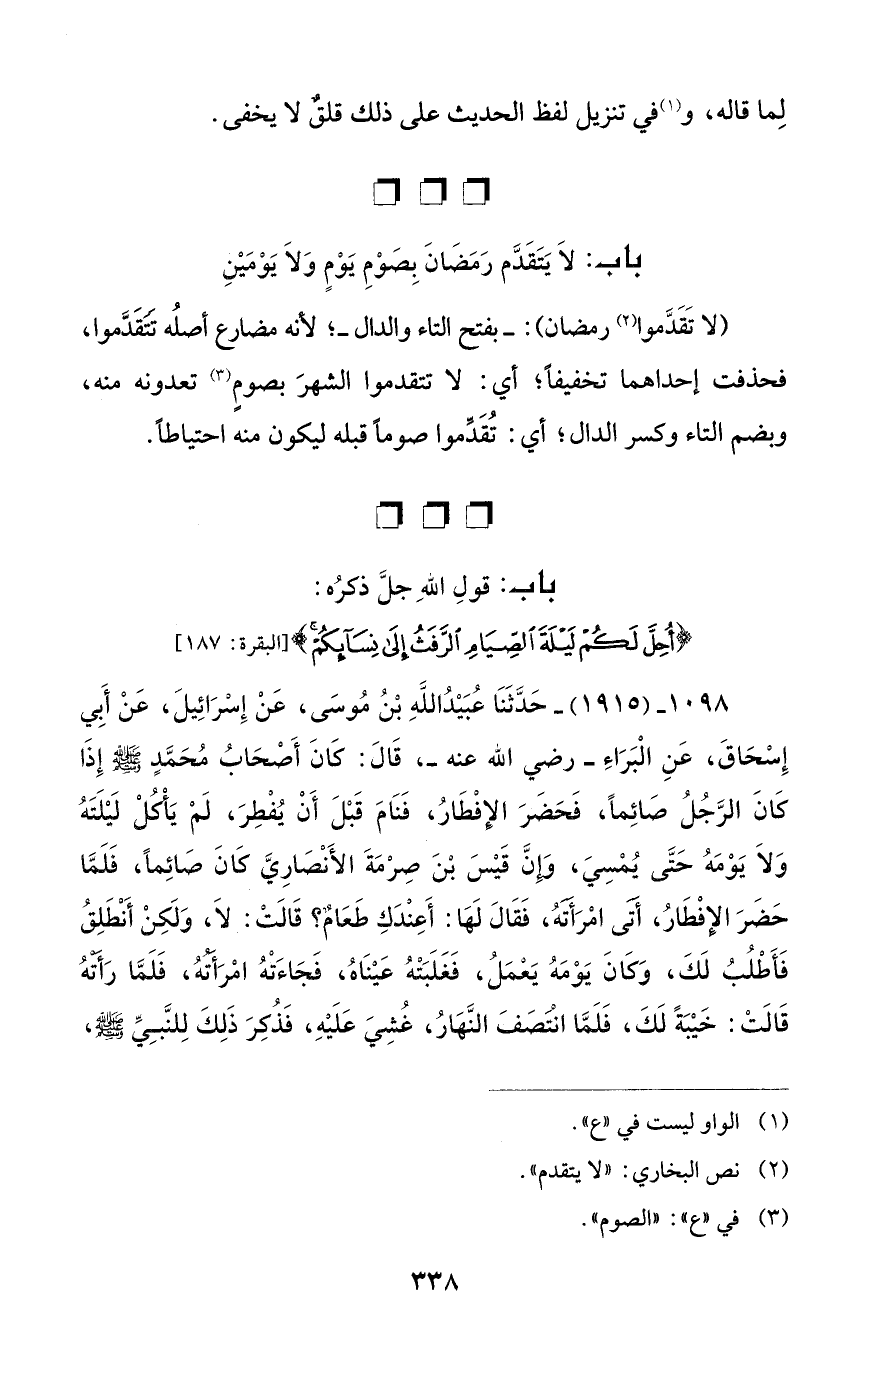 لِما قاله، و(١)في تنزيل لفظ الحديث على ذلك قلقٌ لا يخفى.
باب: لاَ يَتَقَدَّم رَمَضَانَ بِصَوْمِ يَوْمٍ وَلاَ يَوْمَيْنِ
(لا تَقَدَّموا(٢) رمضان): ـ بفتح التاء والدال ـ؛ لأنه مضارع أصلُه تَتَقَدَّموا،
فحذفت إحداهما تخفيفاً؛ أي: لا تتقدموا الشهرَ بصومٍ(٣) تعدونه منه،
وبضم التاء وكسر الدال؛ أي: تُقَدِّموا صوماً قبله ليكون منه احتياطاً.
باب: قولِ اللهِ جلَّ ذكرُه:
﴿أُحِلَّ لَكُمْ لَيْلَةَ ٱلصِّيَامِ ٱلرَّفَثُ إِلَىٰ نِسَآئِكُمْ ۚ﴾ [البقرة: ١٨٧]
١٠٩٨ـ (١٩١٥) ـ حَدَّثَنَا عُبَيْدُاللَّهِ بْنُ مُوسَى، عَنْ إِسْرَائِيلَ، عَنْ أَبِي
إِسْحَاقَ، عَنِ الْبَرَاءِ ـ رضي الله عنه ـ، قَالَ: كَانَ أَصْحَابُ مُحَمَّدٍ ﷺ إِذَا
كَانَ الرَّجُلُ صَائِماً، فَحَضَرَ الإِفْطَارُ، فَنَامَ قَبْلَ أَنْ يُفْطِرَ، لَمْ يَأْكُلْ لَيْلَتَهُ
وَلاَ يَوْمَهُ حَتَّى يُمْسِيَ، وَإِنَّ قَيْسَ بْنَ صِرْمَةَ الأَنْصَارِيَّ كَانَ صَائِماً، فَلَمَّا
حَضَرَ الإِفْطَارُ، أَتَى امْرَأَتَهُ، فَقَالَ لَهَا: أَعِنْدَكِ طَعَامٌ؟ قَالَتْ: لاَ، وَلَكِنْ أَنْطَلِقُ
فَأَطْلُبُ لَكَ، وَكَانَ يَوْمَهُ يَعْمَلُ، فَغَلَبَتْهُ عَيْنَاهُ، فَجَاءَتْهُ امْرَأَتُهُ، فَلَمَّا رَأَتْهُ
قَالَتْ: خَيْبَةً لَكَ، فَلَمَّا انْتَصَفَ النَّهَارُ، غُشِيَ عَلَيْهِ، فَذُكِرَ ذَلِكَ لِلنَّبِيِّ ﷺ،
(١) الواو ليست في «ع».
(٢) نص البخاري: «لا يتقدم».
(٣) في «ع»: «الصوم».
٣٣٨